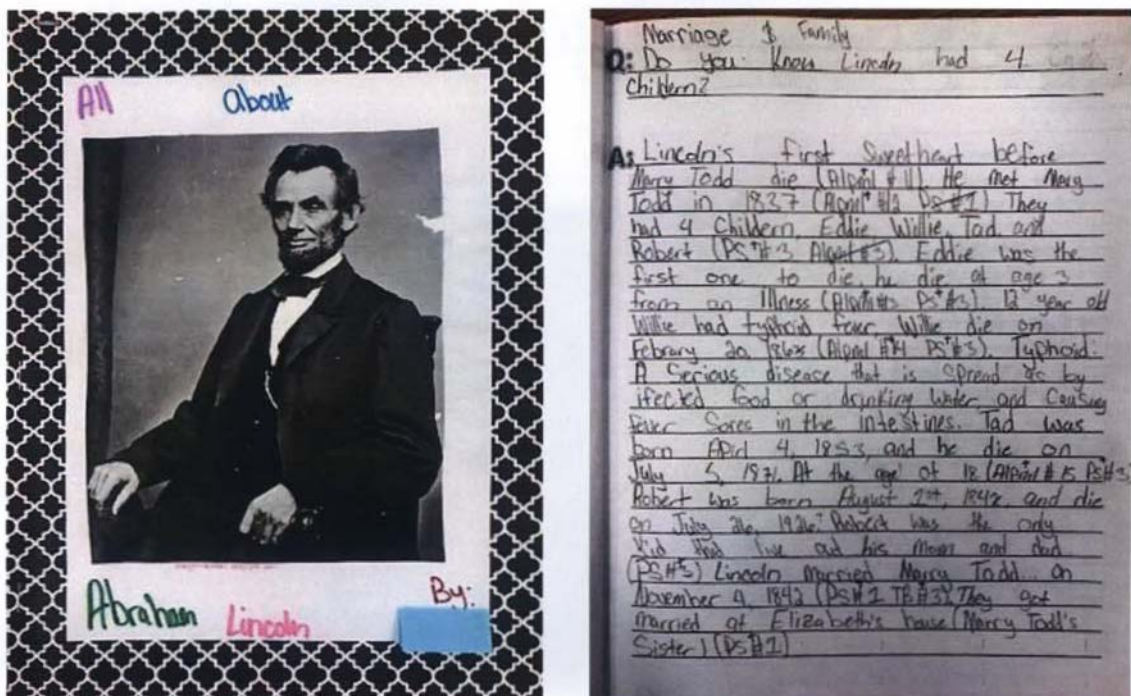 All about
Abraham Lincoln
By:
Marriage & Family
Q: Do you Know Lincoln had 4
Childern?
A: Lincoln's first Sweetheart before
Marry Todd die (Alpin1 # 11) He met Mary
Todd in 1837 (#12 PS #1) They
had 4 Childern, Eddie Willie, Tad, and
Robert (PS #3 #3). Eddie was the
first one to die, he die at age 3
from an Illness (PS #3) 12 year old
Willie had typhoid fever Willie die on
Febrary 20, (#14 PS #3). Typhoid:
A Serious disease that is spread by
ifected food or drinking Water and Causing
fever Sores in the intestines. Tad was
born 4, 1853, and he die on
July 1871. At the age of 18 (#15 PS #3)
Robert was born August 1st, and die
on July 26, 1926. Robert was the only
Kid that live out his mom and dad
(PS #3) Lincoln married Marry Todd on
November 4, 1842 (PS #1 TB #3) They got
married at Elizabeth's house (Marry Todd's
Sister) (PS #1)